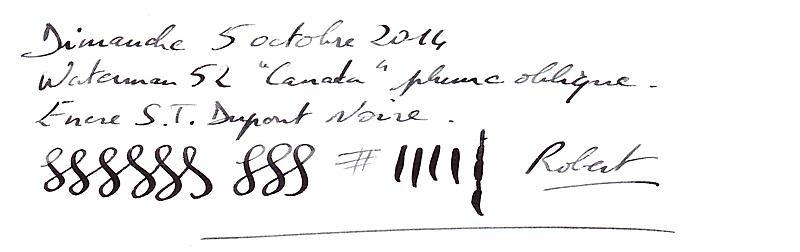 Dimanche 5 octobre 2014
Waterman 52 "Canada" plume oblique.
Encre S.T. Dupont Noire.
Robert